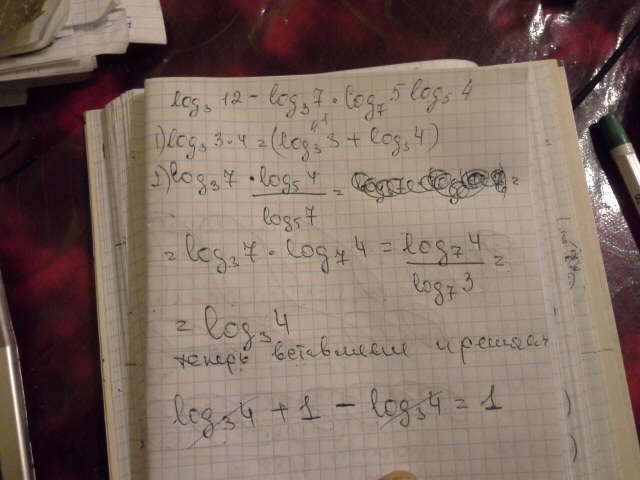 log₃ 12 - log₃ 7 · log₇ 5 log₅ 4
1) log₃ 3·4 = (log₃ 3 + log₃ 4)
2) log₃ 7 · log₅ 4 / log₅ 7 = =
= log₃ 7 · log₇ 4 = log₇ 4 / log₇ 3 =
= log₃ 4
теперь вставляем и решаем
log₃ 4 + 1 - log₃ 4 = 1